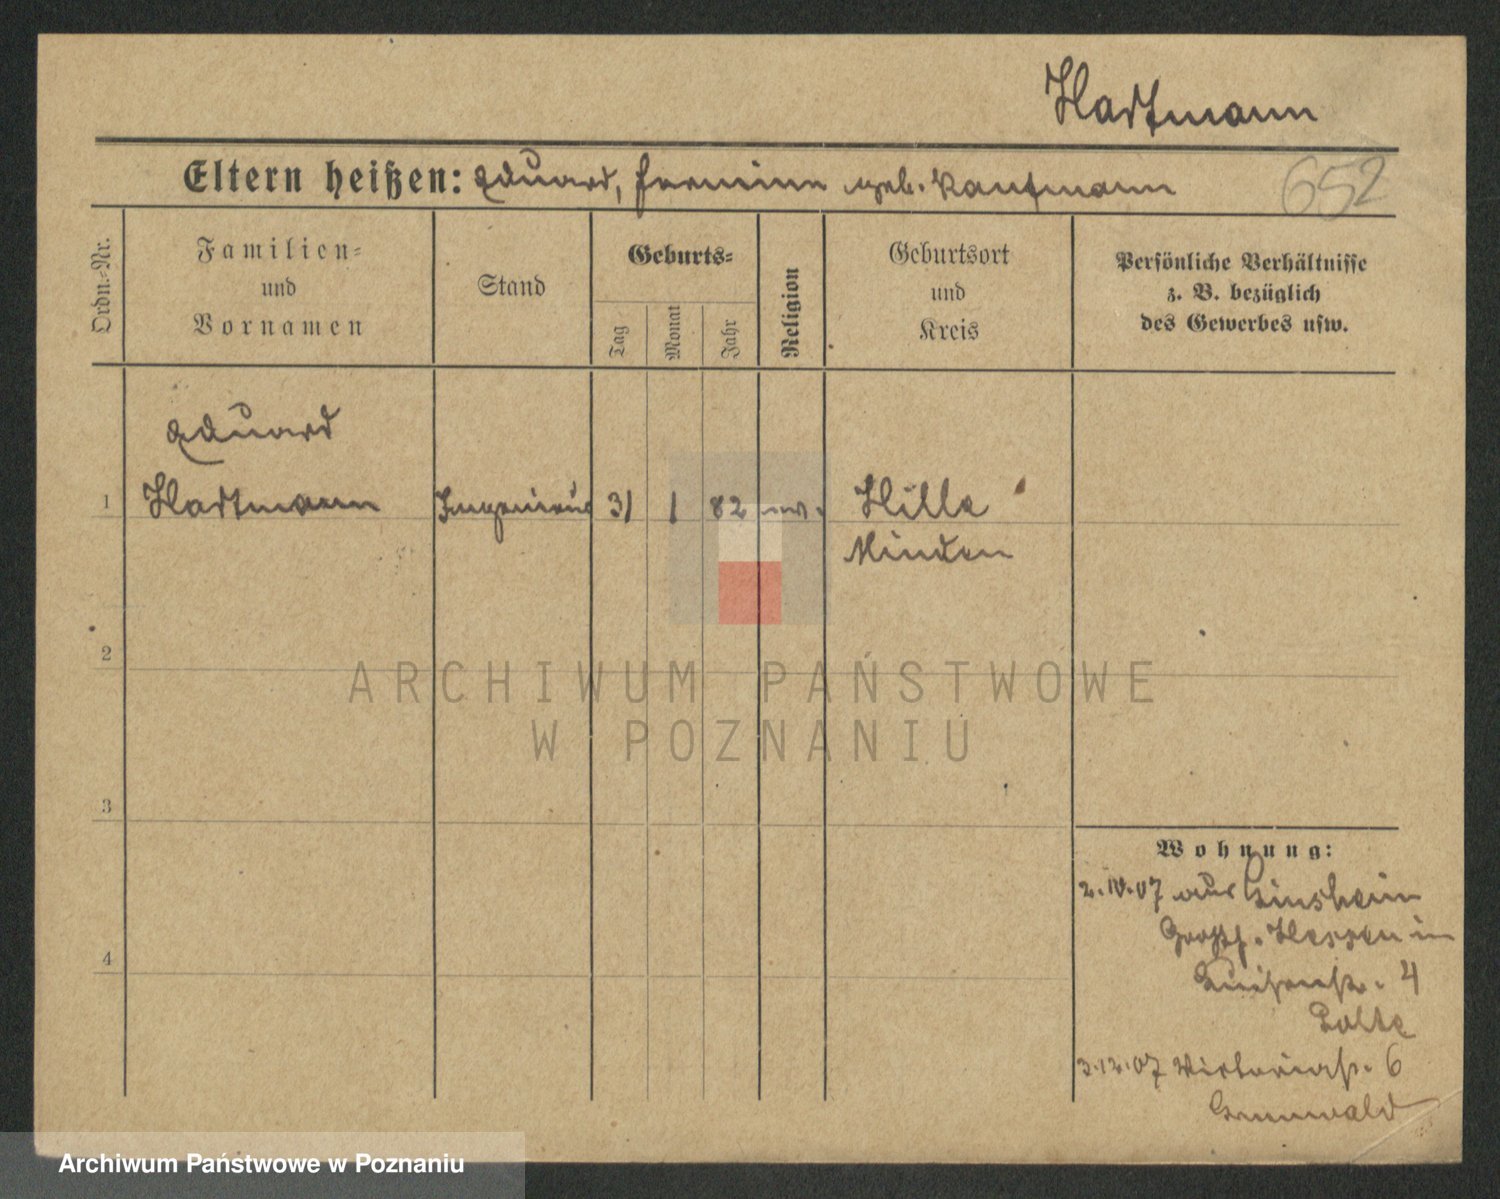 Hartmann
Eltern heißen: Eduard, Hermine geb. Kaufmann
652
Ordn.=Nr.
Familien=
und
Vornamen
Stand
Geburts=
Tag
Monat
Jahr
Religion
Geburtsort
und
Kreis
Persönliche Verhältnisse
z. B. bezüglich
des Gewerbes usw.
Eduard
1 Hartmann Ingenieur 31 1 82 ev. Hille
Minden
2
ARCHIWUM PAŃSTWOWE
W POZNANIU
3
Wohnung:
2.IV.07 aus
Hessen in
4
Luisenstr. 4
Nolte
3.12.07 Victoriastr. 6
Grunwald
Archiwum Państwowe w Poznaniu